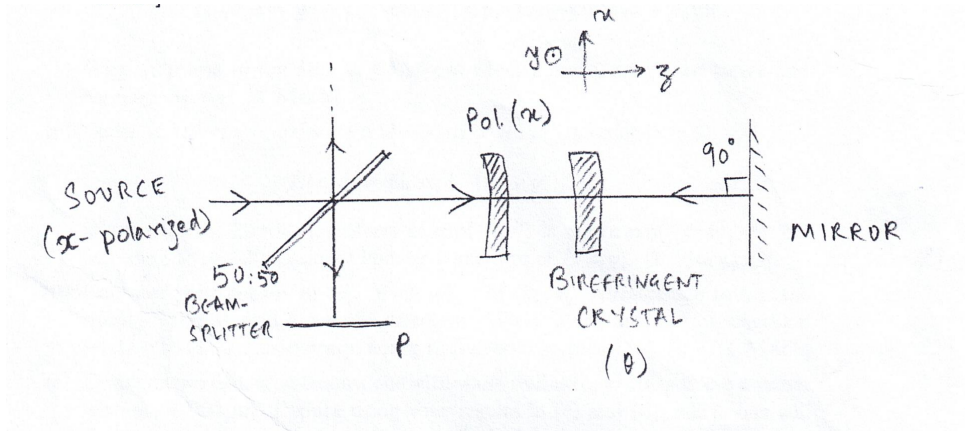 x
y
z
Pol. (x)
90°
SOURCE
(x-polarized)
MIRROR
50:50
BEAM-
SPLITTER
P
BIREFRINGENT
CRYSTAL
(θ)